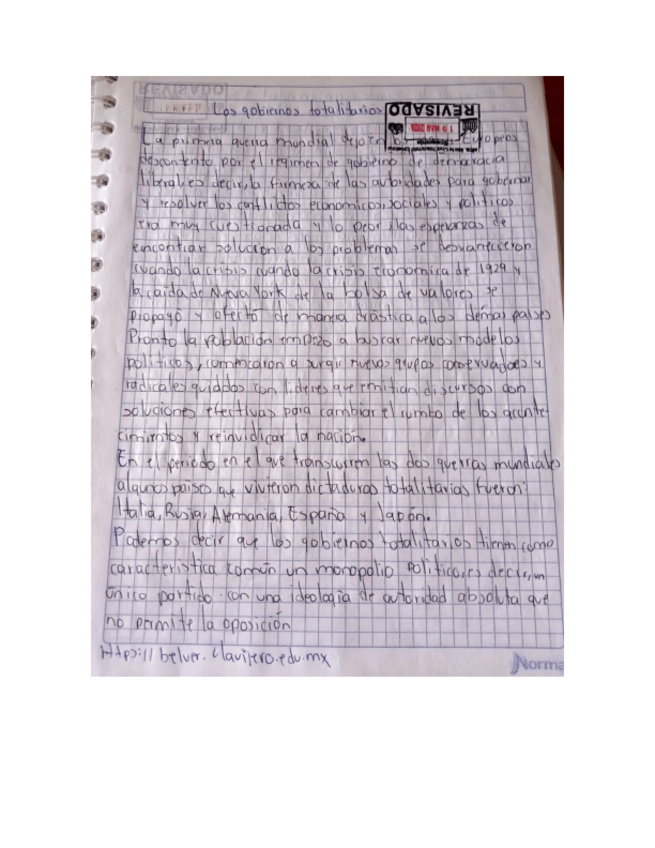 REVISADO
Los gobiernos totalitarios
REVISADO
19 MAR
La primera guerra mundial dejo en Europeos
descontento por el regimen de gobierno de democracia
liberal, es decir, la firmeza de las autoridades para gobernar
y resolver los conflictos economicos, sociales y politicos
era muy cuestionada y lo peor: las esperanzas de
encontrar solucion a los problemas se desvanecieron
cuando la crisis cuando la crisis economica de 1929 y
la caida de Nueva York de la bolsa de valores se
propagó y afectó de manera drástica a los demas paises
Pronto la población empezo a buscar nuevos modelos
politicos, comenzaron a surgir nuevos grupos conservadores y
radicales guiados con lideres que emitian discursos con
soluciones efectivas para cambiar el rumbo de los aconte-
cimientos y reinvidicar la nación.
En el periodo en el que transcurren las dos guerras mundiales
algunos paises que vivieron dictaduras totalitarias fueron:
Italia, Rusia, Alemania, España y Japón.
Podemos decir que los gobiernos totalitarios tienen como
caracteristica común un monopolio politico, es decir, un
único partido con una ideologia de autoridad absoluta que
no permite la oposición
https:// belver. clavijero.edu.mx
Norma